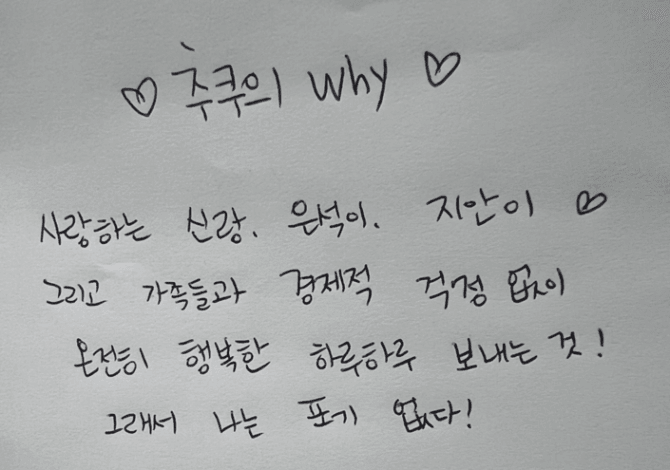 ♡ 추쿠의 why ♡
사랑하는 신랑. 은석이. 지안이 ♡
그리고 가족들과 경제적 걱정 없이
온전히 행복한 하루하루 보내는 것!
그래서 나는 포기 없다!